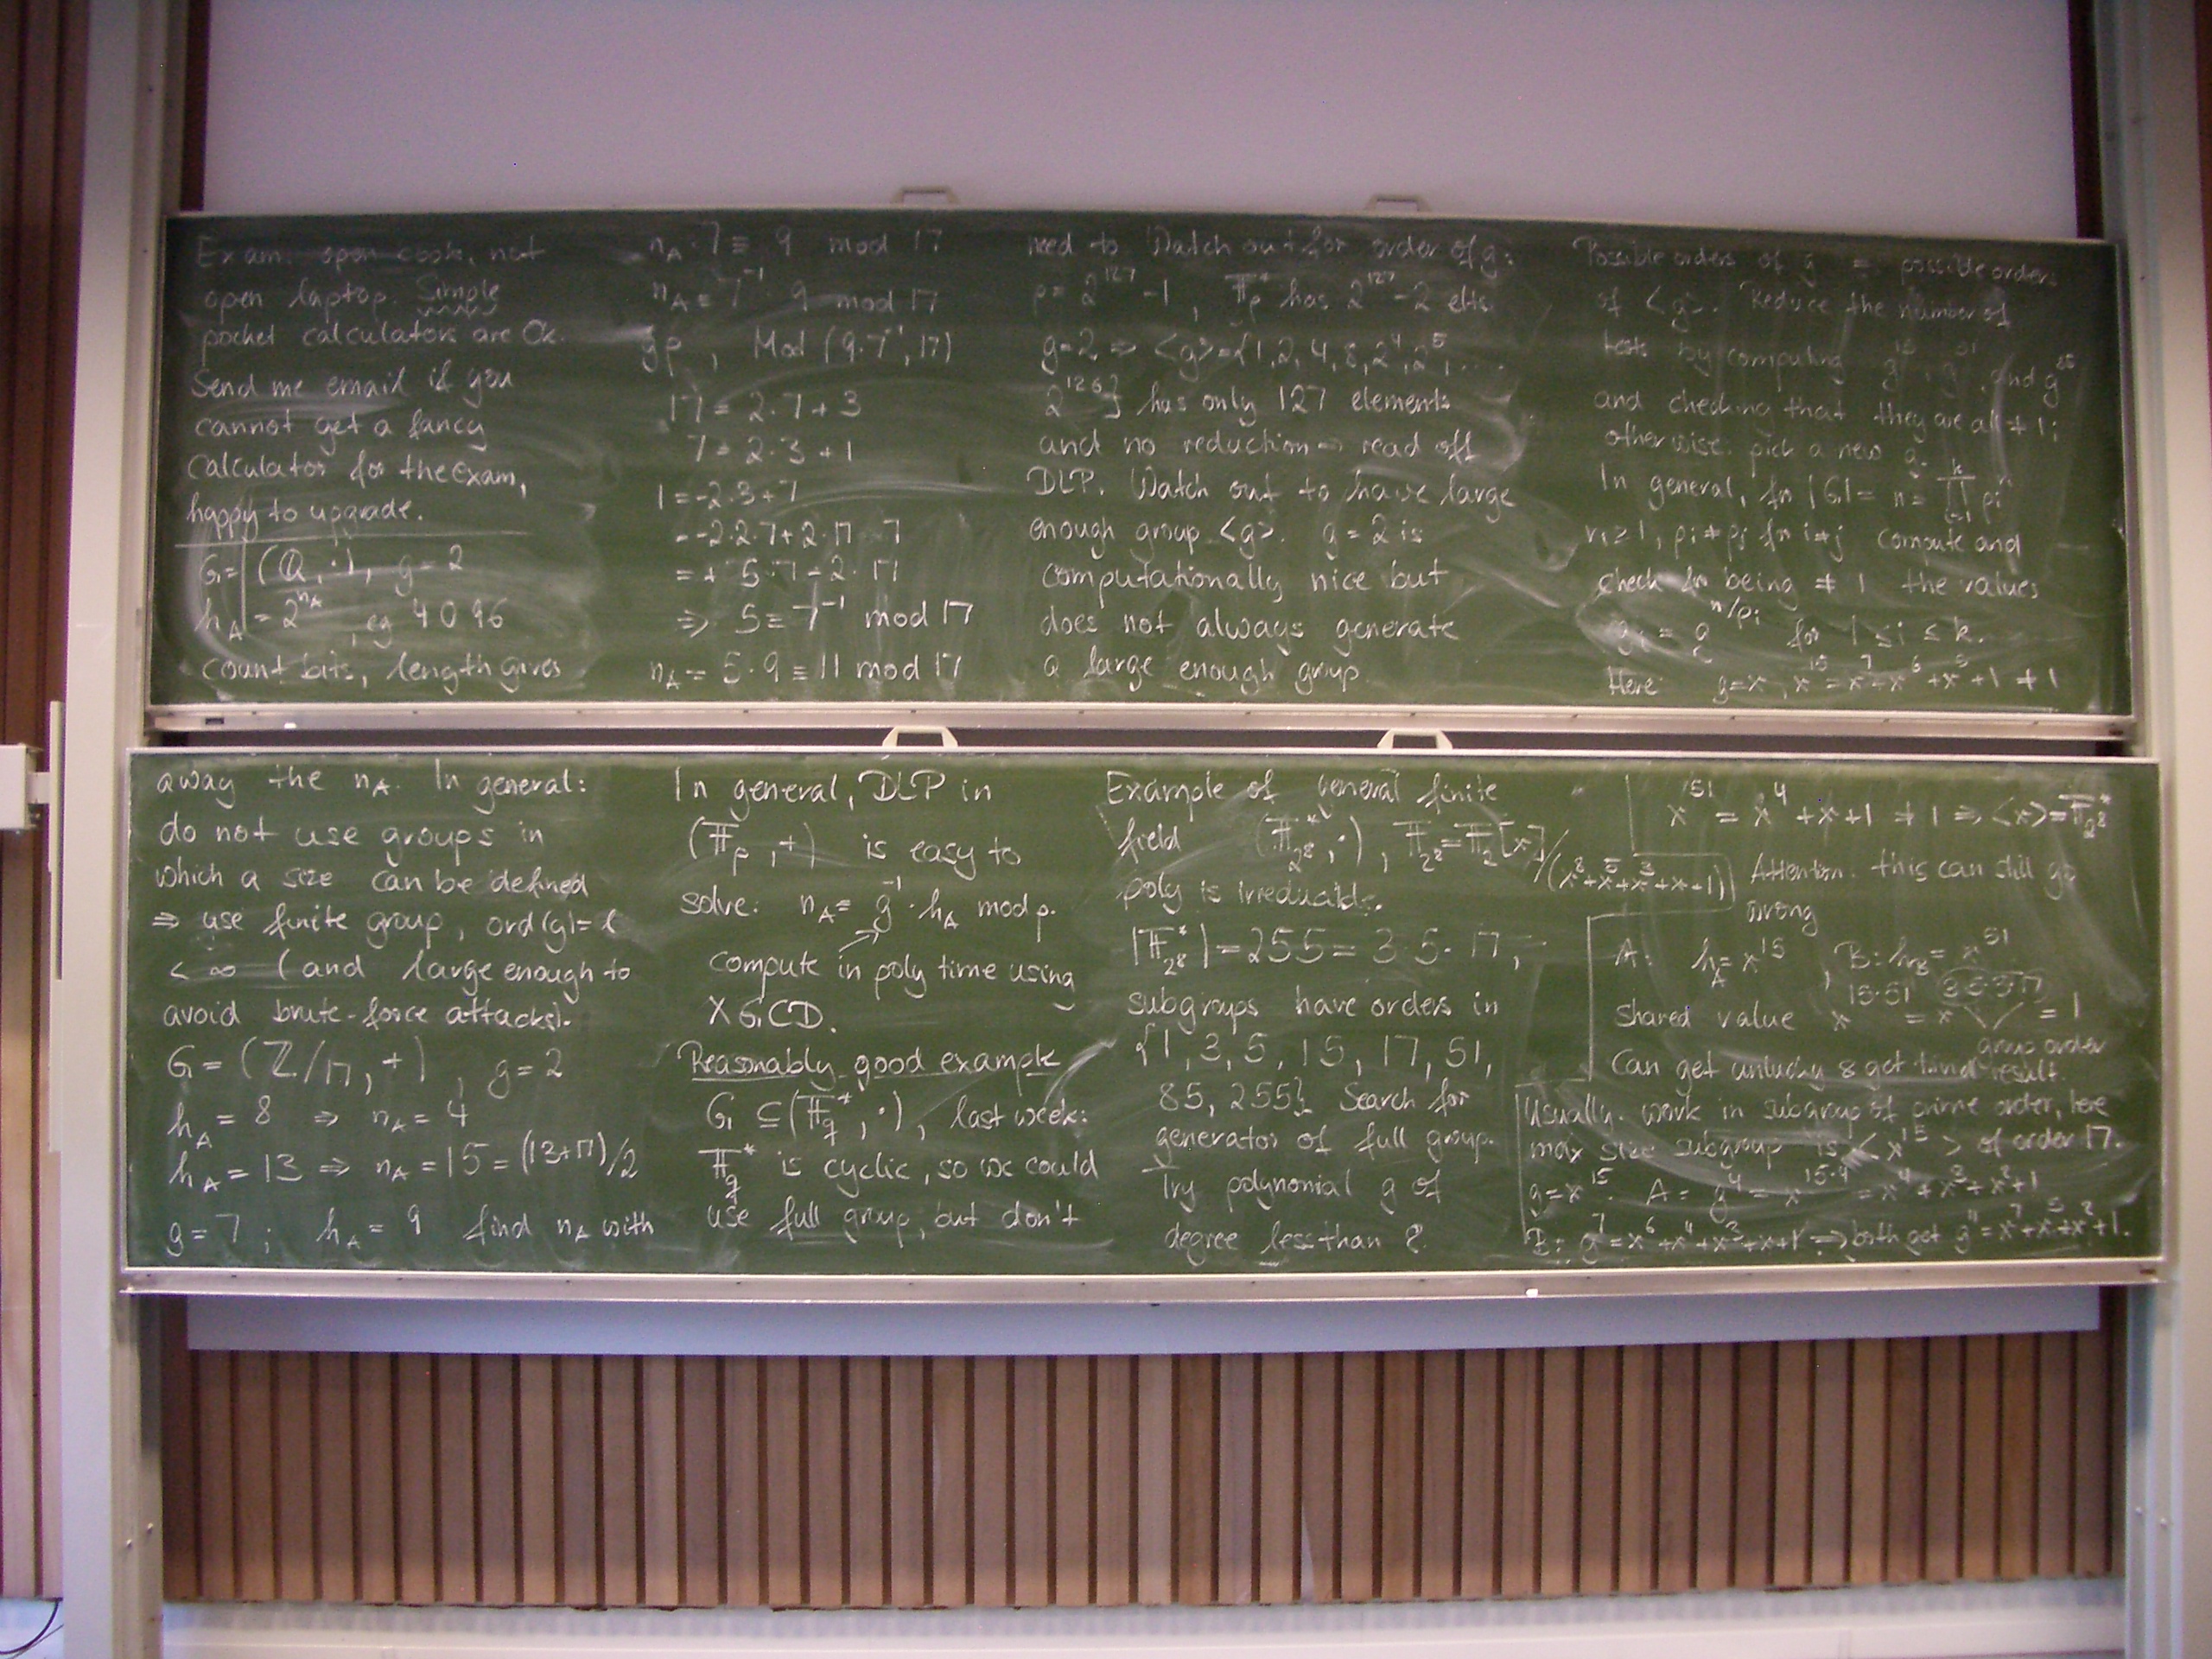 Exam: open book, not
open laptop. Simple
pocket calculators are Ok.
Send me email if you
cannot get a fancy
calculator for the exam,
happy to upgrade.
G = (Q, ·), g = 2
h_A = 2^{n_A}, eg 4096
count bits, length gives
away the n_A. In general:
do not use groups in
which a size can be defined
⇒ use finite group, ord(g) = l
< ∞ (and large enough to
avoid brute-force attacks).
G = (Z/17, +), g = 2
h_A = 8 ⇒ n_A = 4
h_A = 13 ⇒ n_A = 15 = (13+17)/2
g = 7; h_A = 9 find n_A with
n_A · 7 ≡ 9 mod 17
n_A ≡ 7^{-1} · 9 mod 17
gp, Mod (9·7^{-1}, 17)
17 = 2·7 + 3
7 = 2·3 + 1
1 = -2·3 + 7
= -2·2·7 + 2·17 7
= + 5·7 - 2·17
⇒ 5 ≡ 7^{-1} mod 17
n_A = 5·9 ≡ 11 mod 17
In general, DLP in
(F_p, +) is easy to
solve: n_A ≡ g^{-1} · h_A mod p.
compute in poly time using
XGCD.
Reasonably good example
G ⊆ (F_q^*, ·), last week:
F_q^* is cyclic, so we could
use full group, but don't
need to. Watch out for order of g:
p = 2^{127} - 1, F_p^* has 2^{127} - 2 elts.
g = 2 ⇒ <g> = {1, 2, 4, 8, 2^4, 2^5, ...
2^{126}} has only 127 elements
and no reduction ⇒ read off
DLP. Watch out to have large
enough group <g>. g = 2 is
computationally nice but
does not always generate
a large enough group.
Example of general finite
field (F_{2^8}^*, ·), F_{2^8} = F_2[x]/(x^8+x^5+x^3+x+1)
poly is irreducible.
|F_{2^8}^*| = 255 = 3·5·17,
subgroups have orders in
{1, 3, 5, 15, 17, 51,
85, 255}. Search for
generator of full group.
Try polynomial g of
degree less than 8.
Possible orders of g = possible orders
of <g>. Reduce the number of
tests by computing g^{15}, g^{51}, and g^{85}
and checking that they are all ≠ 1;
otherwise pick a new g.
In general, for |G| = n = ∏_{i=1}^k p_i^{r_i}
r_i ≥ 1, p_i ≠ p_j for i ≠ j compute and
check for being ≠ 1 the values
g_i = g^{n/p_i} for 1 ≤ i ≤ k.
Here g = x, x^{15} = x^7 + x^6 + x^5 + 1 ≠ 1
x^{51} = x^4 + x + 1 ≠ 1 ⇒ <x> = F_{2^8}^*
Attention: this can still go
wrong
A: h_A = x^{15}, B: h_B = x^{51}
shared value x^{15·51} = x^{3·5·3·17} = 1
group order
Can get unlucky & get trivial result.
Usually: work in subgroup of prime order, here
max size subgroup is <x^{15}> of order 17.
g = x^{15}. A = g^4 = x^{15·4} = x^4 + x^3 + x^2 + 1
B: g^7 = x^6 + x^4 + x^3 + x + 1 ⇒ both get g^{11} = x^7 + x^5 + x^2 + 1.